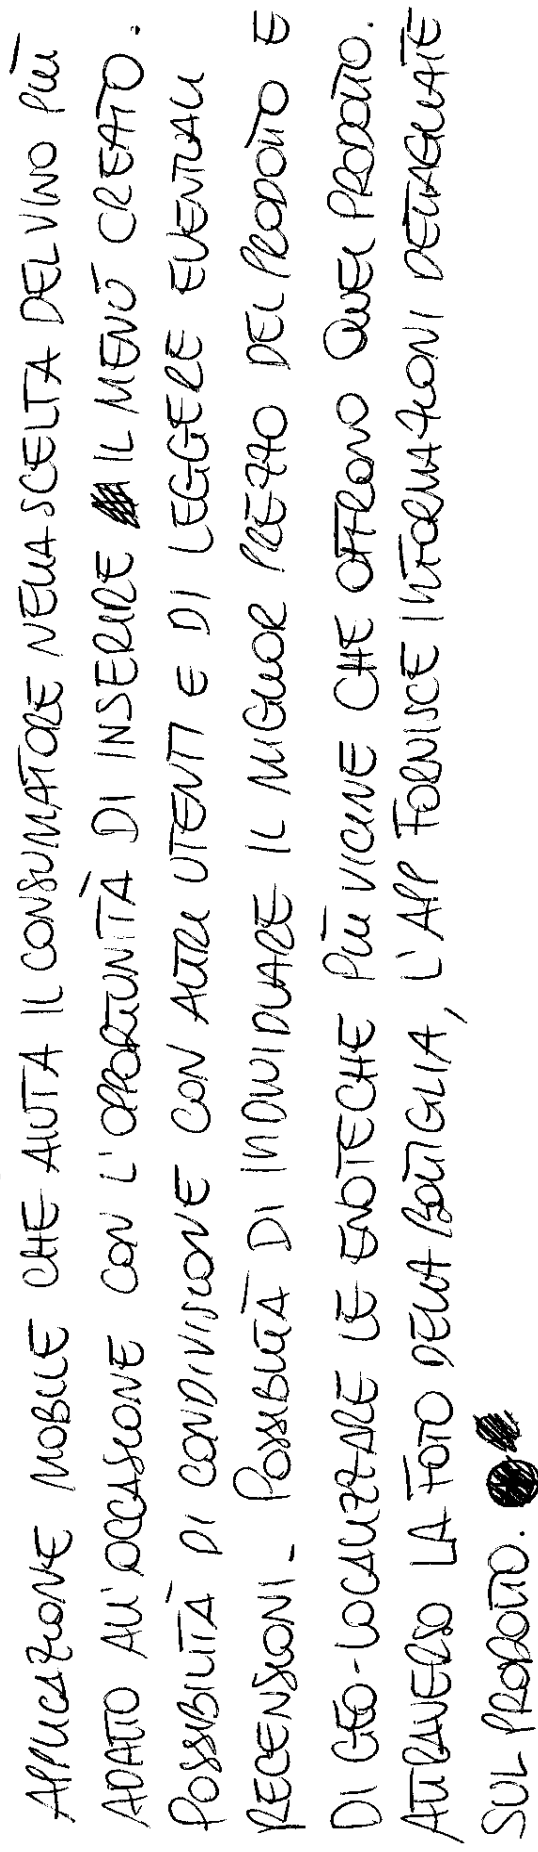 APPLICAZIONE MOBILE CHE AIUTA IL CONSUMATORE NELLA SCELTA DEL VINO PIÙ
ADATTO ALL'OCCASIONE CON L'OPPORTUNITÀ DI INSERIRE IL MENÙ CREATO.
POSSIBILITÀ DI CONDIVISIONE CON ALTRI UTENTI E DI LEGGERE EVENTUALI
RECENSIONI. POSSIBILITÀ DI INDIVIDUARE IL MIGLIOR PREZZO DEL PRODOTTO E
DI GEO-LOCALIZZARE LE ENOTECHE PIÙ VICINE CHE OFFRONO QUEL PRODOTTO.
ATTRAVERSO LA FOTO DELLA BOTTIGLIA, L'APP FORNISCE INFORMAZIONI DETTAGLIATE
SUL PRODOTTO.